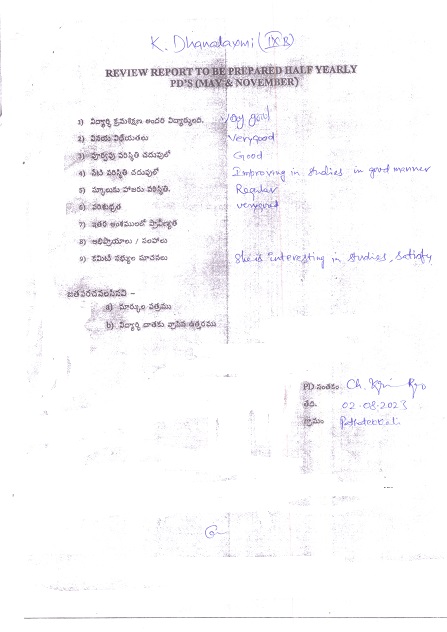 K. Dhanalaxmi (IX R)
REVIEW REPORT TO BE PREPARED HALF YEARLY
PD'S (MAY & NOVEMBER)
1) విద్యార్థి క్రమశిక్షణ అందరి విద్యార్థులది. very good
2) వినయ విధేయతలు Verygood
3) పూర్వపు పరిస్థితి చదువులో Good
4) నేటి పరిస్థితి చదువులో Improving in studies in good manner
5) స్కూలుకు హాజరు పరిస్థితి. Regular
6) పరిశుభ్రత verygood
7) ఇతర అంశములలో ప్రావీణ్యత
8) అభిప్రాయాలు / సలహాలు
9) కమిటీ సభ్యుల సూచనలు She is interesting in studies, satisfy
జతపరచవలసినవి –
a) మార్కుల పత్రము
b) విద్యార్థి దాతకు వ్రాసిన ఉత్తరము
PD సంతకం Ch.
తేది. 02-08-2023
గ్రామం